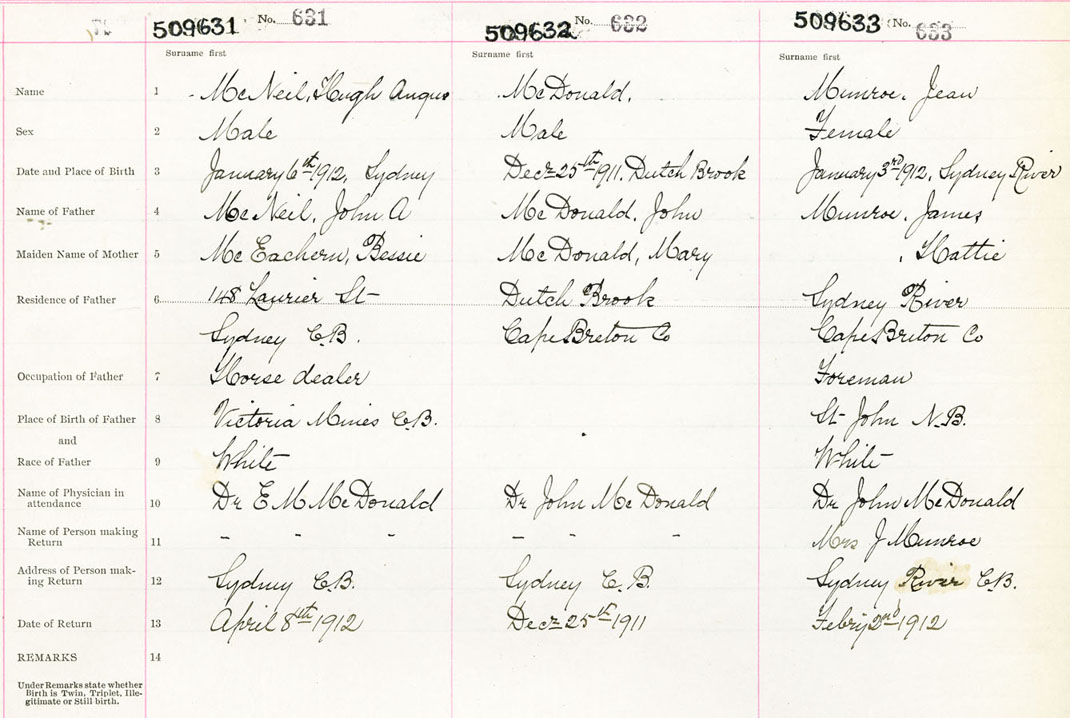 509631 No. 631 509632 No. 632 509633 (No. 633
Surname first Surname first Surname first
Name 1 McNeil, Hugh Angus McDonald, Munroe, Jean
Sex 2 Male Male Female
Date and Place of Birth 3 January 6th 1912, Sydney Decr 25th 1911, Dutch Brook January 3rd 1912, Sydney River
Name of Father 4 McNeil, John A McDonald, John Munroe, James
Maiden Name of Mother 5 McEachern, Bessie McDonald, Mary , Hattie
Residence of Father 6 148 Laurier St Dutch Brook Sydney River
Sydney C.B. Cape Breton Co Cape Breton Co
Occupation of Father 7 Horse dealer Foreman
Place of Birth of Father 8 Victoria Mines C.B. St John N.B.
and
Race of Father 9 White White
Name of Physician in
attendance 10 Dr E M McDonald Dr John McDonald Dr John McDonald
Name of Person making
Return 11 " " " " " " Mrs J Munroe
Address of Person mak-
ing Return 12 Sydney C.B. Sydney C.B. Sydney River C.B.
Date of Return 13 April 8th 1912 Decr 25th 1911 Febry 2nd 1912
REMARKS 14
Under Remarks state whether
Birth is Twin, Triplet, Ille-
gitimate or Still birth.